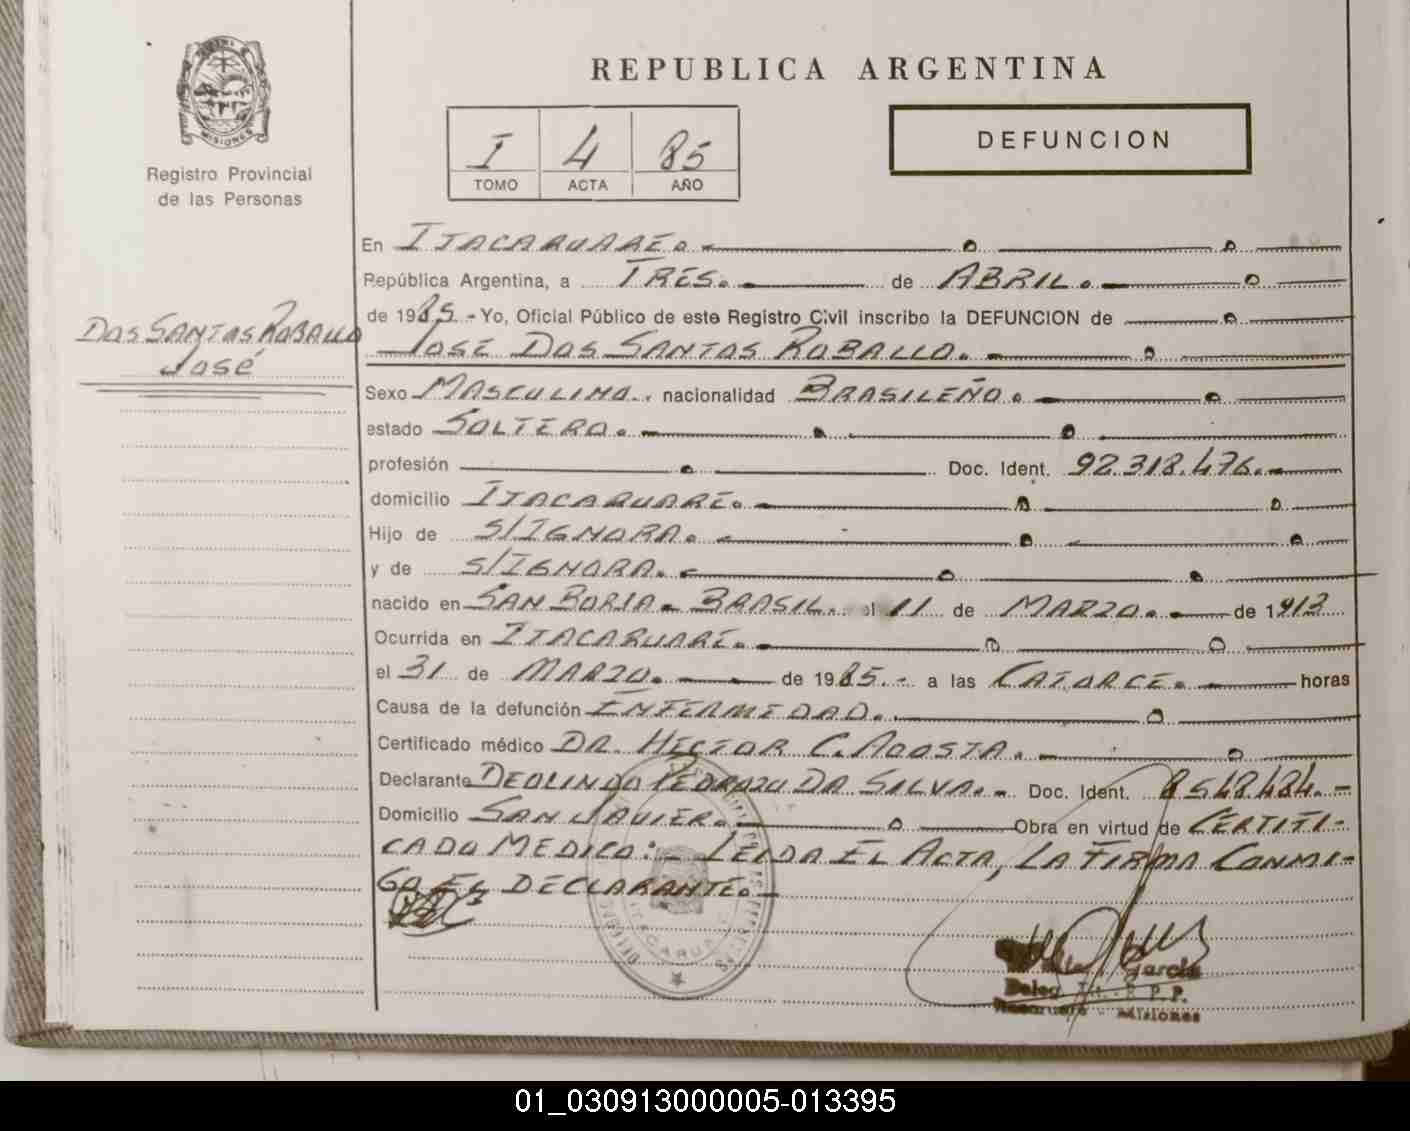 REPUBLICA ARGENTINA
MISIONES
Registro Provincial
de las Personas
I 4 85
TOMO ACTA AÑO
DEFUNCION
DOS SANTOS ROBALLO
JOSÉ
En ITACARUARÉ.
República Argentina, a TRES. de ABRIL.
de 1985.- Yo, Oficial Público de este Registro Civil inscribo la DEFUNCION de
JOSÉ DOS SANTOS ROBALLO.
Sexo MASCULINO. nacionalidad BRASILEÑO.
estado SOLTERO.
profesión Doc. Ident. 92.318.476.
domicilio ITACARUARÉ.
Hijo de S/IGNORA.
y de S/IGNORA.
nacido en SAN BORJA - BRASIL. el 11 de MARZO. de 1913
Ocurrida en ITACARUARÉ.
el 31 de MARZO. de 1985.- a las CATORCE. horas
Causa de la defunción ENFERMEDAD.
Certificado médico DR. HECTOR C. ACOSTA.
Declarante DEOLINDO PEDROZO DA SILVA.- Doc. Ident. 8548484.-
Domicilio SAN JAVIER. Obra en virtud de CERTIFI-
CADO MEDICO:- LEIDA EL ACTA, LA FIRMA CONMI-
GO EL DECLARANTE.-
García
Deleg. R.P.P.
Itacaruaré - Misiones
01_030913000005-013395